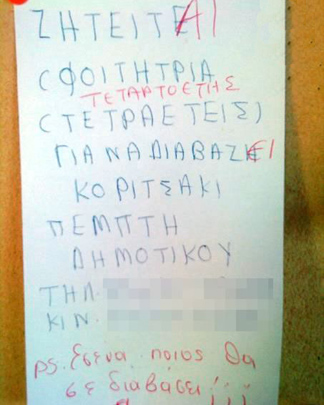 ΖΗΤΕΙΤΕΑΙ
(ΦΟΙΤΗΤΡΙΑ
ΤΕΤΑΡΤΟΕΤΗΣ
(ΤΕΤΡΑΕΤΕΙΣ)
ΓΙΑ ΝΑ ΔΙΑΒΑΖΕΙ
ΚΟΡΙΤΣΑΚΙ
ΠΕΜΠΤΗ
ΔΗΜΟΤΙΚΟΥ
ΤΗΛ.
ΚΙΝ.
ps. Εσενα ποιος θα
σε διαβάσει!!!